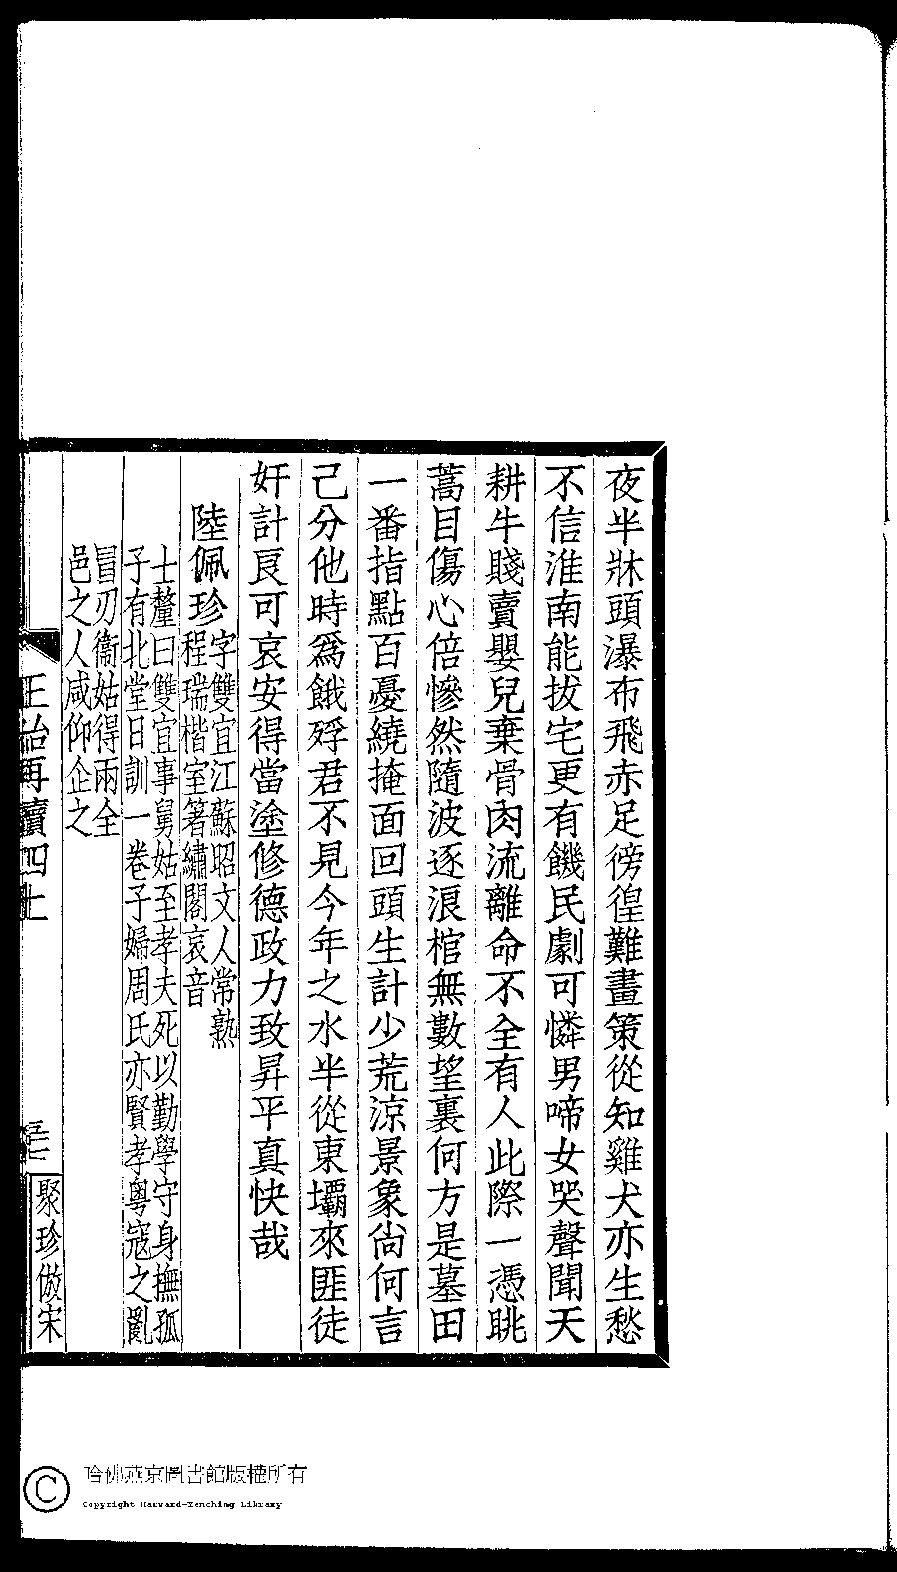 夜半牀頭瀑布飛赤足徬徨難畫策從知雞犬亦生愁
不信淮南能拔宅更有饑民劇可憐男啼女哭聲聞天
耕牛賤賣嬰兒棄骨肉流離命不全有人此際一憑眺
蒿目傷心倍慘然隨波逐浪棺無數望裏何方是墓田
一番指點百憂繞掩面回頭生計少荒涼景象尙何言
己分他時爲餓殍君不見今年之水半從東壩來匪徒
奸計良可哀安得當塗修德政力致昇平真快哉
陸佩珍
字雙宜江蘇昭文人常熟
程瑞楷室箸繡閣哀音
士釐曰雙宜事舅姑至孝夫死以勤學守身撫孤
子有北堂日訓一卷子婦周氏亦賢孝粵寇之亂
冒刃衞姑得兩全
邑之人咸仰企之
正始再續四上
聚珍倣宋
哈佛燕京圖書館版權所有
Copyright Harvard-Yenching Library